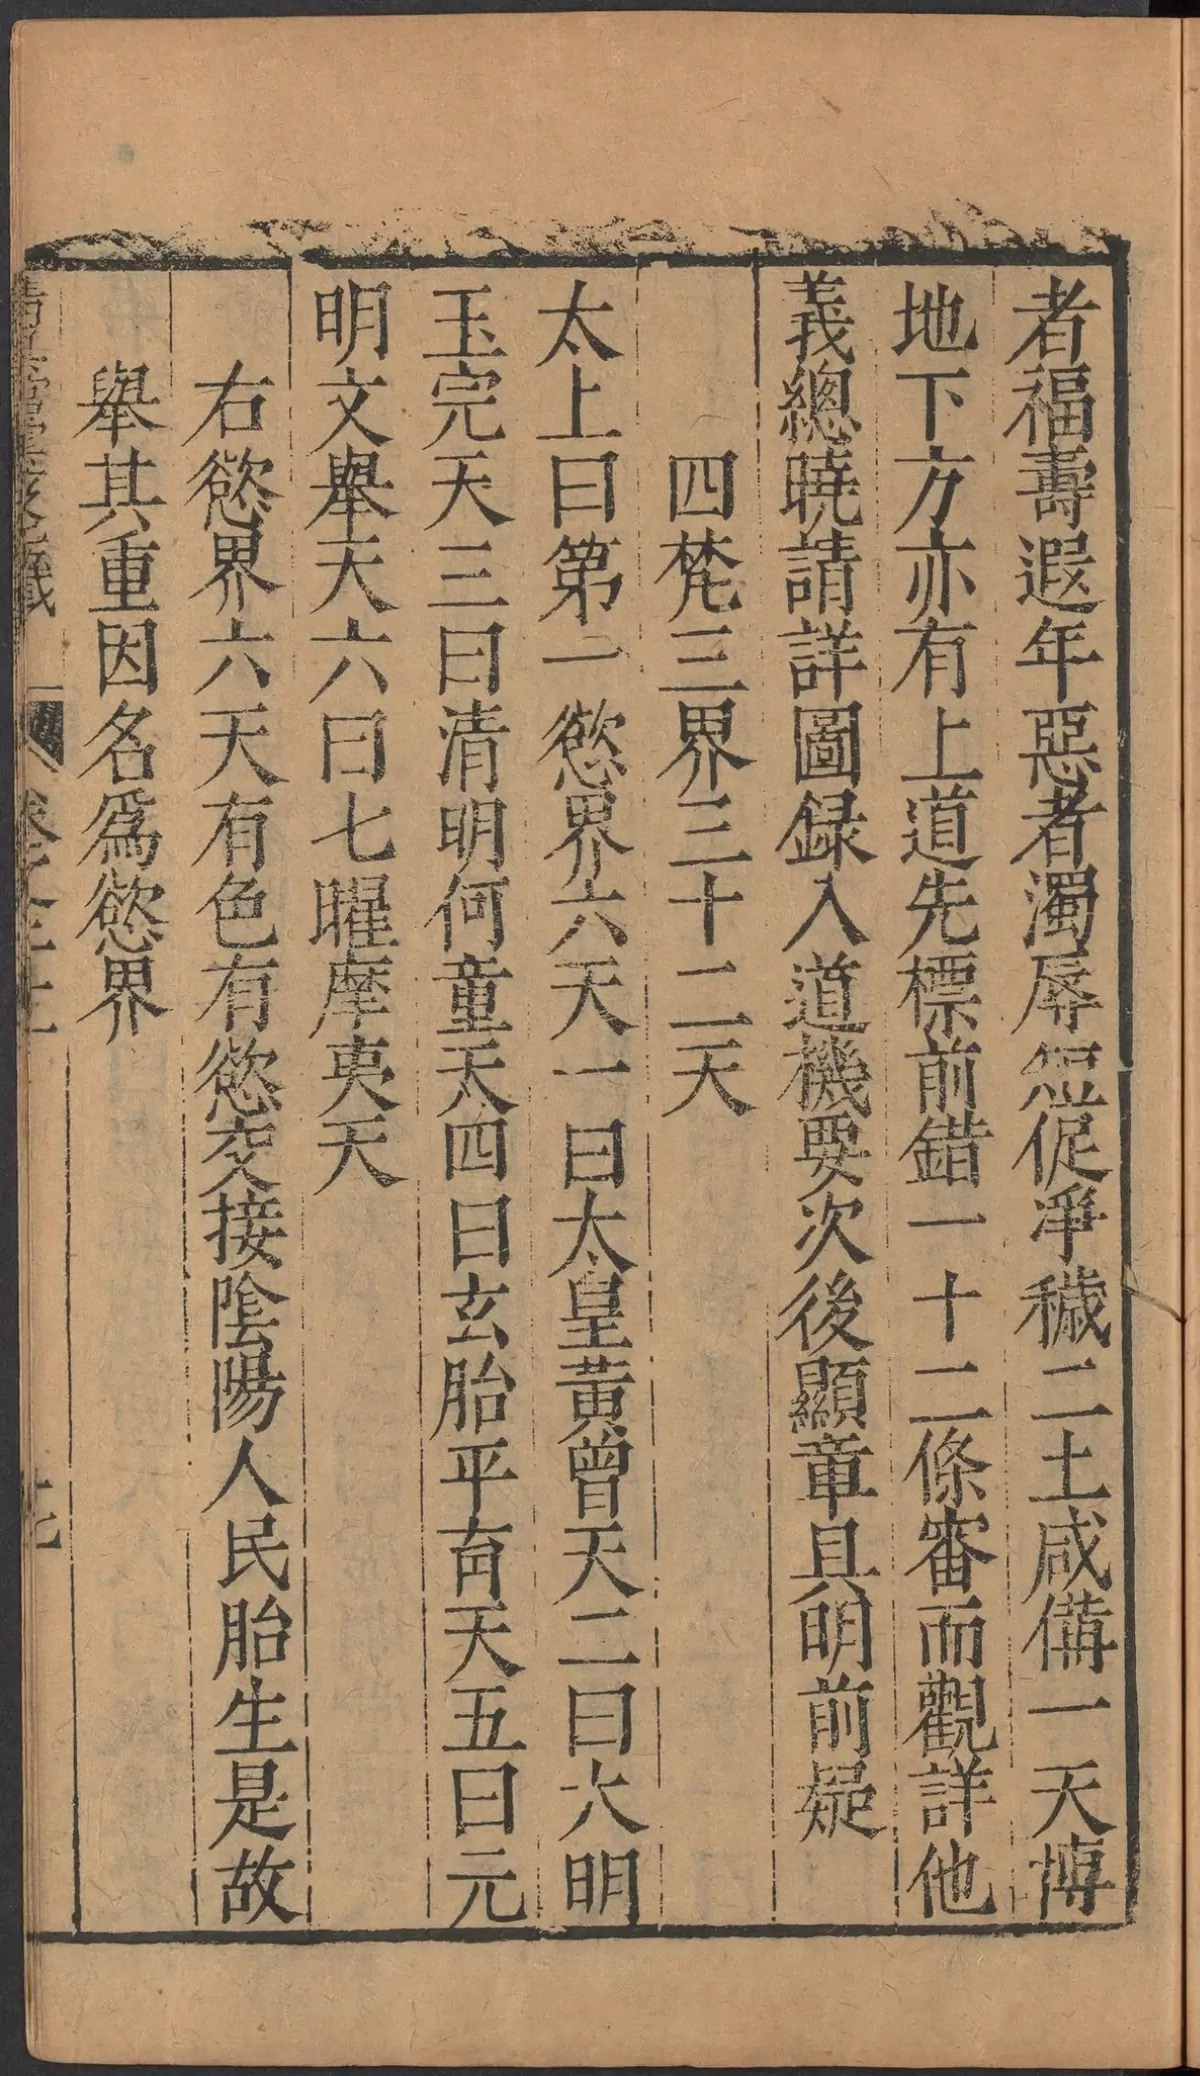 者福壽遐年惡者濁辱短促淨穢二土咸備一天博
地下方亦有上道先標前錯一十二條審而觀詳他
義總曉請詳圖録入道機要次後顯章具明前疑
四梵三界三十二天
太上曰第一慾界六天一曰太皇黃曾天二曰大明
玉完天三曰清明何童天四曰玄胎平育天五曰元
明文舉天六曰七曜摩夷天
右慾界六天有色有慾交接陰陽人民胎生是故
舉其重因名爲慾界